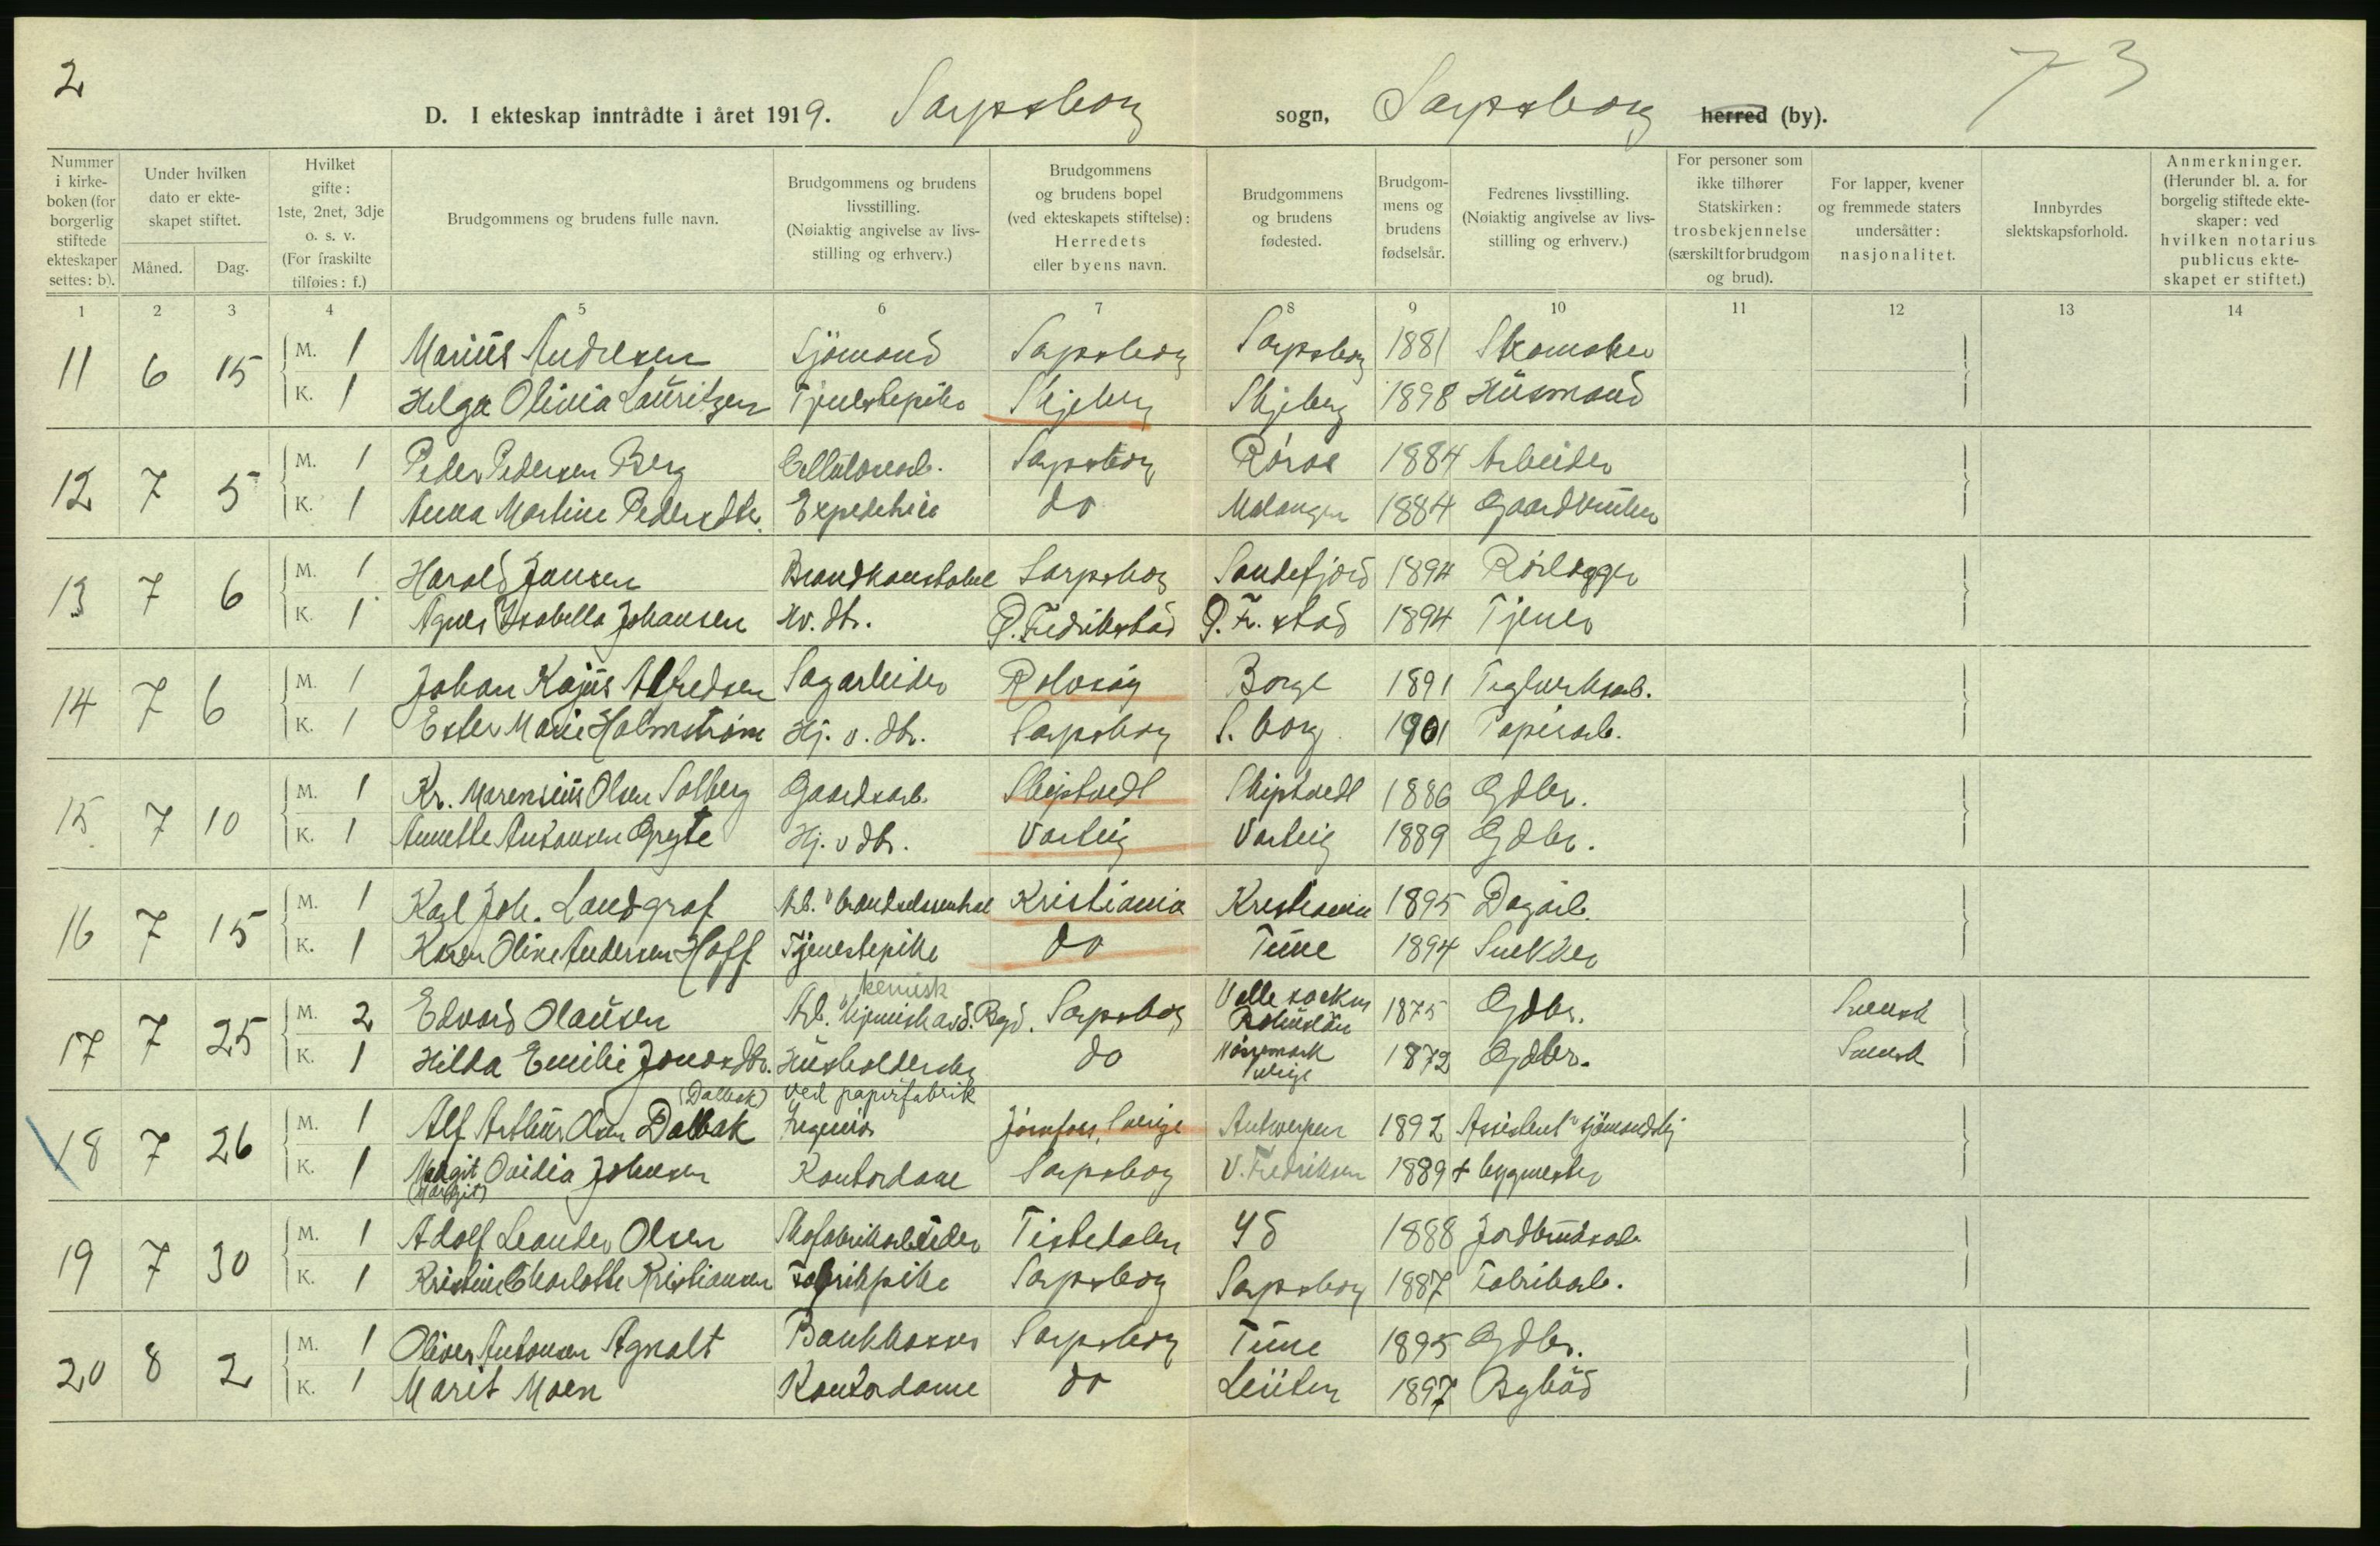 2
7 3
D. I ekteskap inntrådte i året 1919. Sarpsborg sogn, Sarpsborg herred (by).
Nummer i kirke- boken (for borgerlig stiftede ekteskaper settes: b).
Under hvilken dato er ekte- skapet stiftet.
Måned. Dag.
Hvilket gifte: 1ste, 2net, 3dje o. s. v. (For fraskilte tilføies: f.)
Brudgommens og brudens fulle navn.
Brudgommens og brudens livsstilling. (Nøiaktig angivelse av livs- stilling og erhverv.)
Brudgommens og brudens bopel (ved ekteskapets stiftelse): Herredets eller byens navn.
Brudgommens og brudens fødested.
Brudgom- mens og brudens fødselsår.
Fedrenes livsstilling. (Nøiaktig angivelse av livs- stilling og erhverv.)
For personer som ikke tilhører Statskirken: trosbekjennelse (særskilt for brudgom og brud).
For lapper, kvener og fremmede staters undersåtter: nasjonalitet.
Innbyrdes slektskapsforhold.
Anmerkninger. (Herunder bl. a. for borgelig stiftede ekte- skaper: ved hvilken notarius publicus ekte- skapet er stiftet.)
1 2 3 4 5 6 7 8 9 10 11 12 13 14
11 6 15 M. 1 Marius Andresen Sjömand Sarpsborg Sarpsborg 1881 Skomaker
K. 1 Helga Olivia Lauritzen Tjenestepike Skjeberg Skjeberg 1898 Husmand
12 7 5 M. 1 Peder Pedersen Berg Cellulosearb. Sarpsborg Röros 1884 Arbeider
K. 1 Anna Martine Pedersdtr. Expeditrice do Malangen 1884 Gaardbruker
13 7 6 M. 1 Harald Jansen Brandkonstabel Sarpsborg Sandefjord 1894 Rörlægger
K. 1 Agnes Isabella Johansen Hv. dtr. Ö. Fredrikstad Ö. Fr. stad 1894 Tjener
14 7 6 M. 1 Johan Kajus Alfredsen Sagarbeider Rolvsöy Borge 1891 Teglverksarb.
K. 1 Ester Marie Holmström Hj. v. dtr. Sarpsborg S. borg 1901 Papirarb.
15 7 10 M. 1 Kr. Marensius Olsen Solberg Gaardsarb. Skiptvedt Skiptvedt 1886 Gdbr.
K. 1 Annette Antonsen Opsyte Hj. v dtr. Varteig Varteig 1889 Gdbr.
16 7 15 M. 1 Karl Joh. Landgraf Arb. v brændselscentral Kristiania Kristiania 1895 Dagarb.
K. 1 Karen Oline Andersen Hoff Tjenestepike do Tune 1894 Snekker
17 7 25 M. 2 Edvard Olausen Arb. v kjemisk avd. Borg. kemisk Sarpsborg Valle socken Bohuslän 1875 Gdbr. Svensk
K. 1 Hilda Emilie Jonasdtr. Husholderske do Nössemark Sverige 1872 Gdbr. Svensk
18 7 26 M. 1 Alf Arthur Olsen Dalbak (Dalbak) Ingeniör ved papirfabrik Jössefors, Sverige Antwerpen 1892 Assistent v sjömandskj
K. 1 Margit Ovidia Johansen (Margit) Kontordame Sarpsborg V. Fredriksen 1889 + bygmester
19 7 30 M. 1 Adolf Leander Olsen Skofabrikarbeider Tistedalen Id 1888 Jordbruksarb.
K. 1 Kristine Charlotte Kristiansen Fabrikpike Sarpsborg Sarpsborg 1887 Fabrikarb.
20 8 2 M. 1 Oliver Antonsen Agnalt Bankkasser Sarpsborg Tune 1895 Gdbr.
K. 1 Marit Moen Kontordame do Leuten 1897